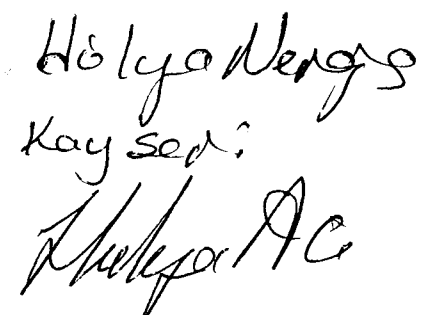 Hülya Nergis
Kayseri
Hulya A C